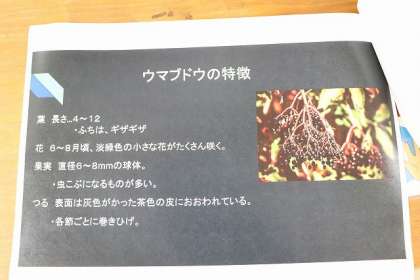 ウマブドウの特徴
葉 長さ…4~12
・ふちは、ギザギザ
花 6~8月頃、淡緑色の小さな花がたくさん咲く。
果実 直径6~8mmの球体。
・虫こぶになるものが多い。
つる 表面は灰色がかった茶色の皮におおわれている。
・各節ごとに巻きひげ。